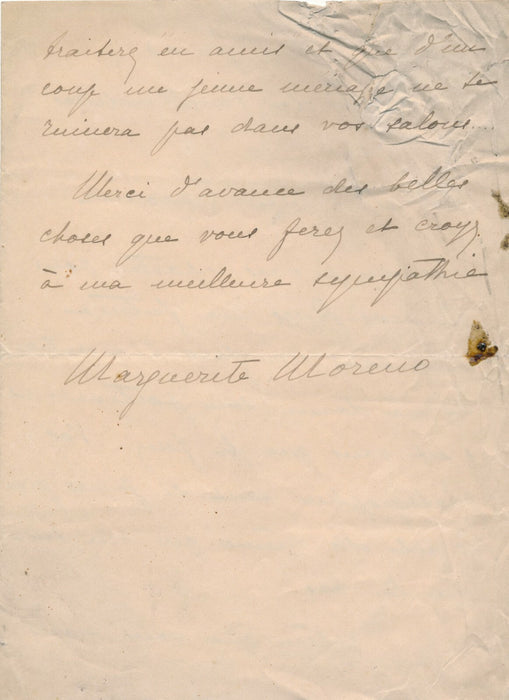 traiterez en amis et que d'un
coup un jeune ménage ne se
ruinera pas dans vos salons...
Merci d'avance des belles
choses que vous ferez et croyez
à ma meilleure sympathie
Marguerite Moreno